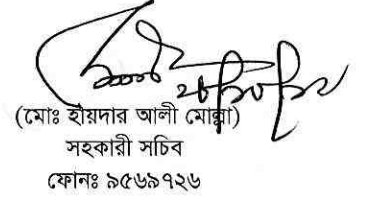 (মোঃ হায়দার আলী মোল্লা)
সহকারী সচিব
ফোনঃ ৯৫৬৯৭২৬